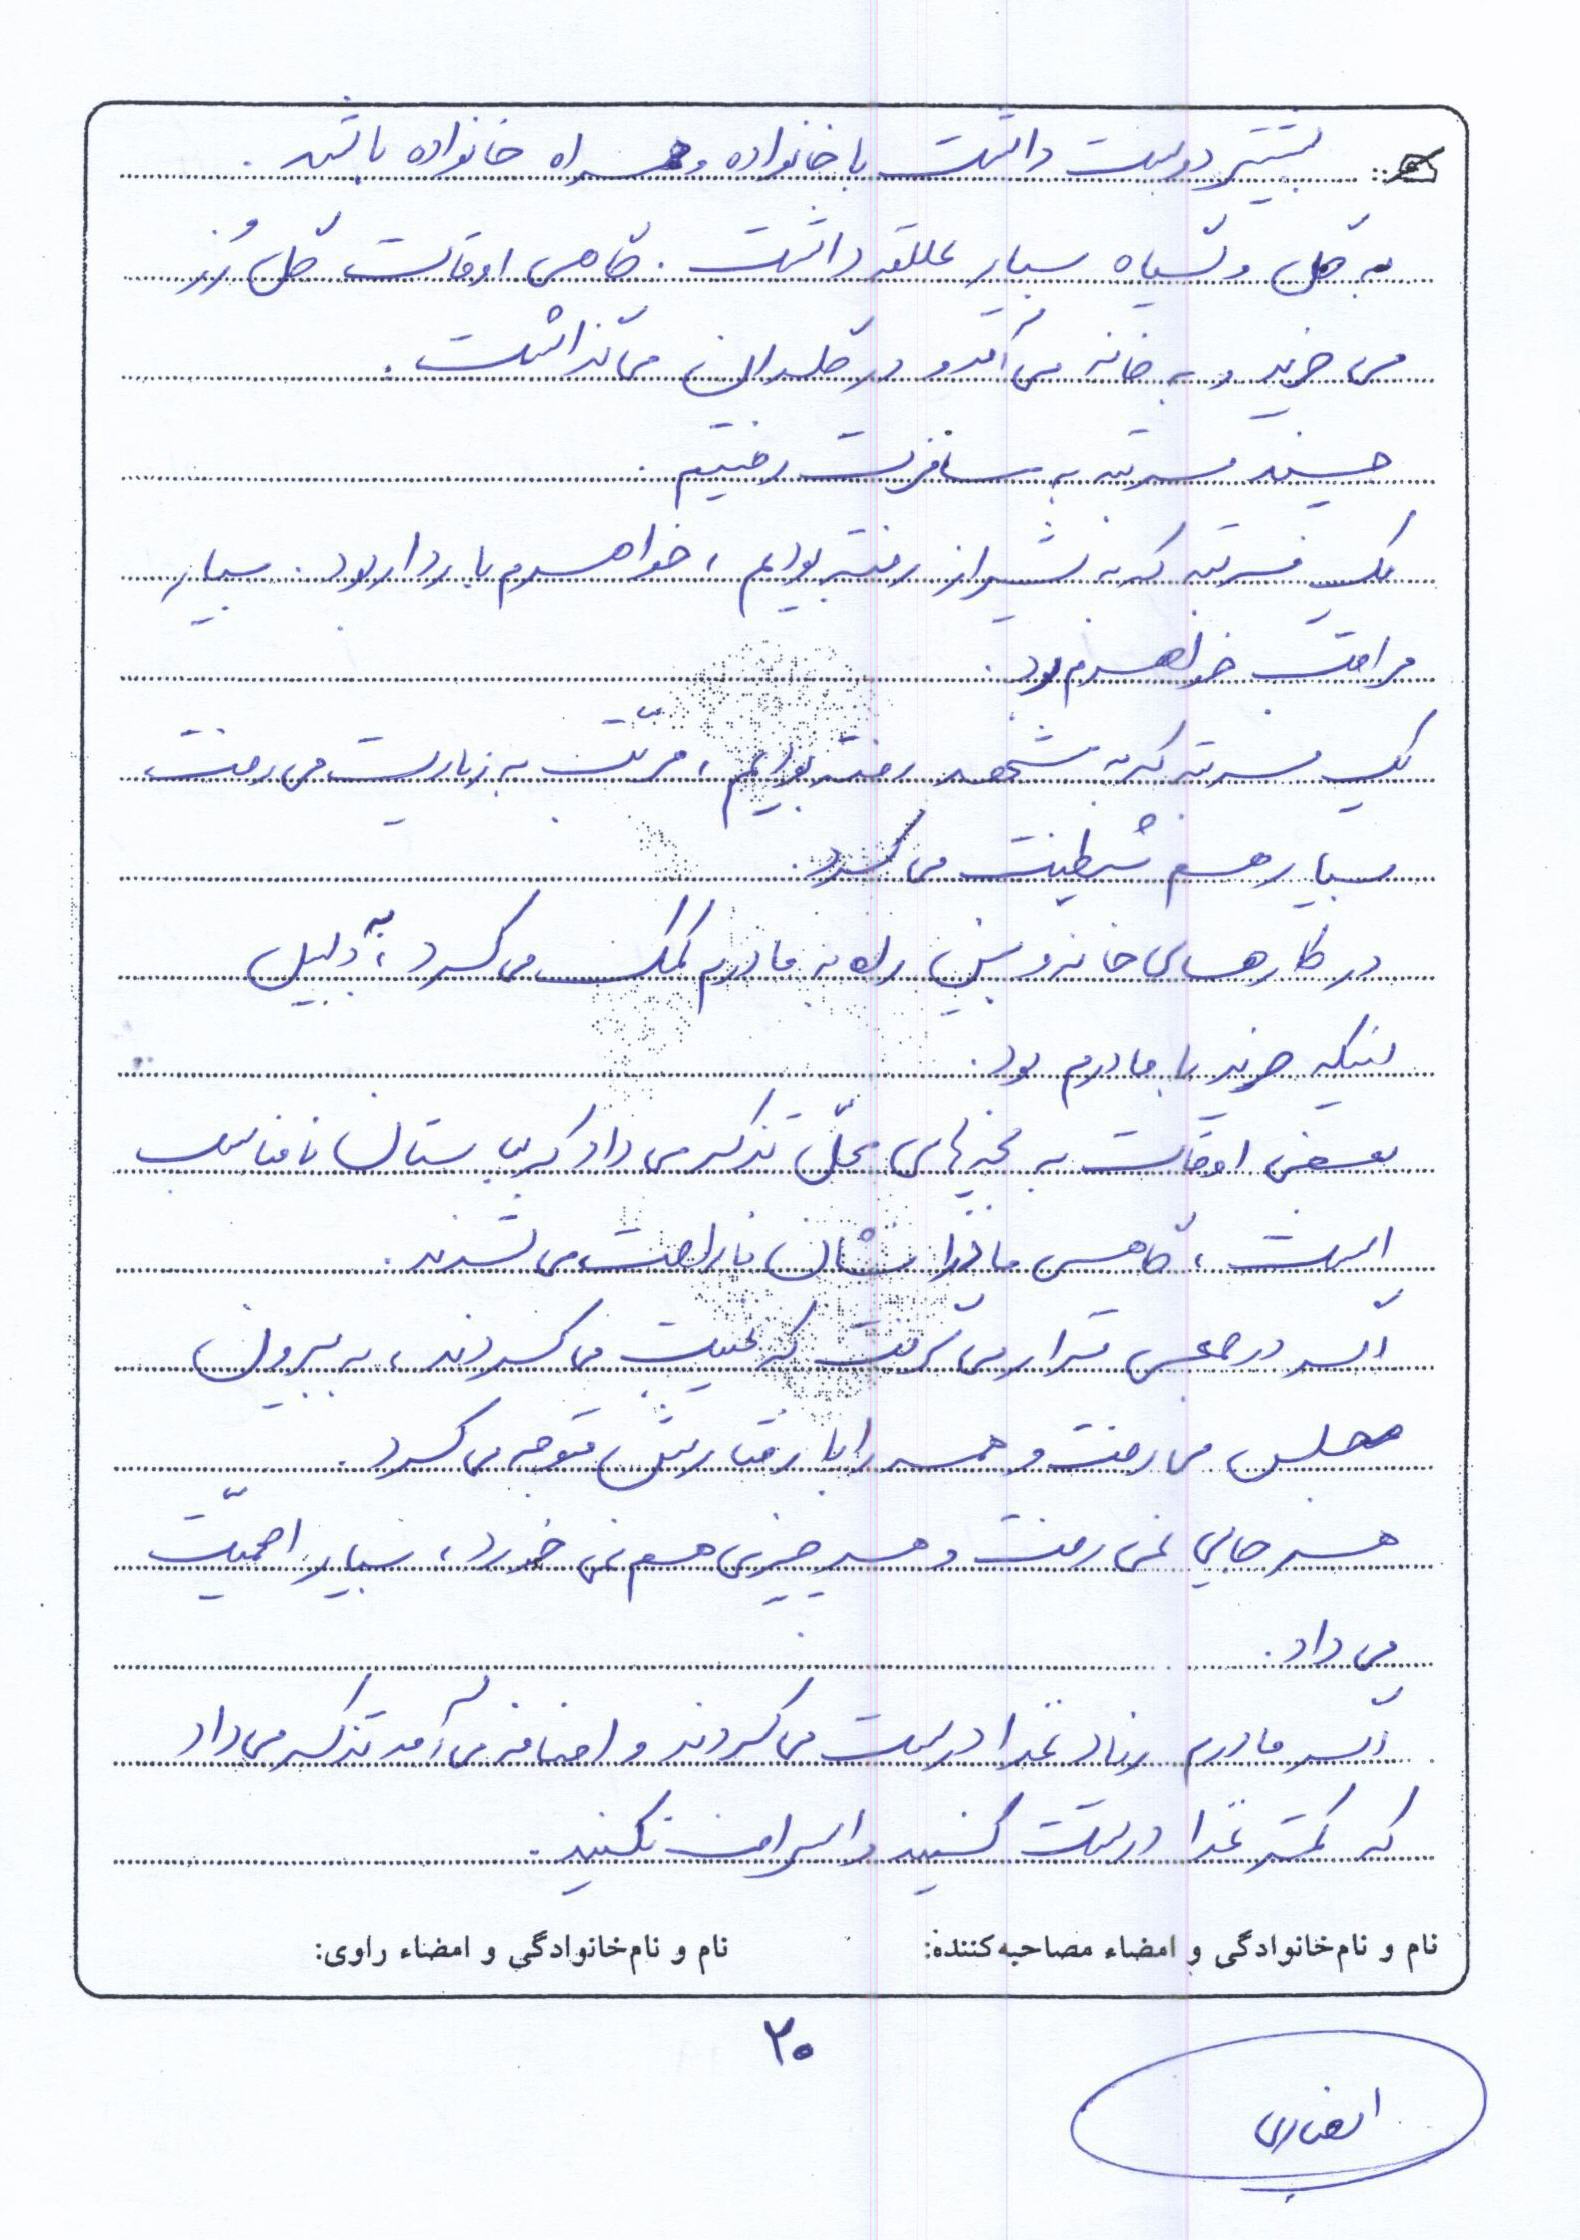 بیشتر دوست داشت با خانواده و همراه خانواده باشد.
به گل و گیاه بسیار علاقه داشت. گاهی اوقات گل رُز
می خرید و به خانه می آمد و در گلدان می گذاشت.
چند مرتبه به مسافرت رفتیم.
یک مرتبه که به شیراز رفته بودیم، خواهرم باردار بود. بسیار
مراقب خواهرم بود.
یک مرتبه که به مشهد رفته بودیم، مرتّب به زیارت می رفت
بسیار هم شیطنت می کرد.
در کارهای خانه و بین راه به مادرم کمک می کرد، به دلیل
اینکه خرید با مادرم بود.
بعضی اوقات به بچه های محلّ تذکر می داد که لباستان نامناسب
است، گاهی مادرانشان ناراحت می شدند.
اگر در جمعی قرار می گرفت که غیبت می کردند، به بیرون
مجلس می رفت و همه را با رفتارش متوجه می کرد.
هر جایی نمی رفت و هر چیزی هم نمی خورد، بسیار اهمیّت
می داد.
اگر مادرم زیاد غذا درست می کردند و اضافه می آمد تذکر می داد
که کمتر غذا درست کنید و اسراف نکنید.
نام و نام خانوادگی و امضاء مصاحبه کننده: نام و نام خانوادگی و امضاء راوی:
۲۰
انصاری